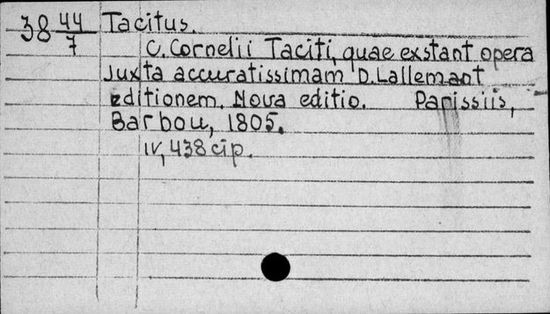 38 44/7 Tacitus.
C. Cornelii Taciti, quae exstant opera
juxta accuratissimam D. Lallemant
editionem. Nova editio. Parissiis,
Barbou, 1805.
IV, 438 cip.